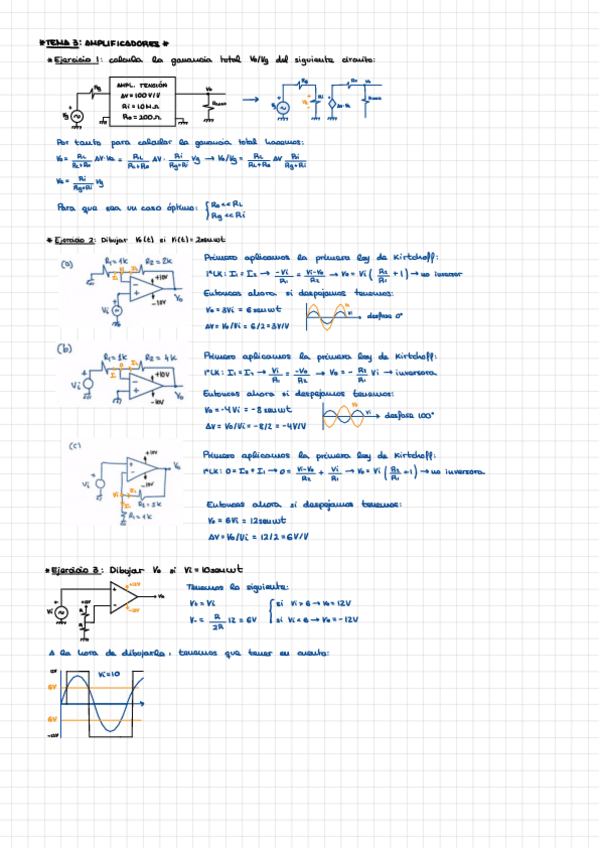 *TEMA 3: AMPLIFICADORES*
* Ejercicio 1: calcula la ganancia total Vo/Vg del siguiente circuito:
AMPL. TENSIÓN
AV = 100 V/V
Ri = 10MΩ
Ro = 200Ω
Rg
Vo
Vg
Por tanto para calcular la ganancia total hacemos:
Para que sea un caso óptimo: { Ro << RL
Rg << Ri
* Ejercicio 2: Dibujar Vo(t) si Vi(t) = 2senwt
(a)
R1 = 1k R2 = 2k
+10V
-10V
Vi
Vo
Primero aplicamos la primera ley de Kirtchoff:
1ªLK: I1 = I2 → -Vi/R1 = Vi-Vo/R2 → Vo = Vi (R2/R1 + 1) → no inversor
Entonces ahora si despejamos tenemos:
Vo = 3Vi = 6senwt
AV = Vo/Vi = 6/2 = 3V/V
desfase 0°
(b)
R2 = 4k
+10V
-10V
Vi
Vo
Primero aplicamos la primera ley de Kirtchoff:
1ªLK: I1 = I2 → Vi/R1 = -Vo/R2 → Vo = - R2/R1 Vi → inversora
Entonces ahora si despejamos tenemos:
Vo = -4Vi = -8senwt
AV = Vo/Vi = -8/2 = -4V/V
(c)
+10V
-10V
Vo
Vi
R2 = 5k
R1 = 1k
Primero aplicamos la primera ley de Kirtchoff:
1ªLK: 0 = I2 + I1 → 0 = Vi-Vo/R2 + Vi/R1 → Vo = Vi (R2/R1 + 1) → no inversora
Entonces ahora si despejamos tenemos:
Vo = 6Vi = 12senwt
AV = Vo/Vi = 12/2 = 6V/V
* Ejercicio 3: Dibujar Vo si Vi = 10senwt
+12V
-12V
Vi
Vo
Tenemos lo siguiente:
V+ = Vi
V- = R/2R 12 = 6V
{ si Vi > 6 → Vo = 12V
si Vi < 6 → Vo = -12V
A la hora de dibujarla, tenemos que tener en cuenta:
12V
6V
Vi = 10
6V
-12V